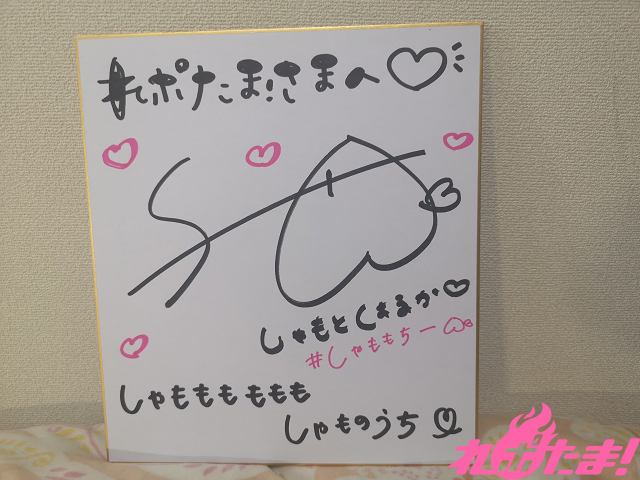 れポたま!さまへ♡
しゃもとくぁるが♡
#しゃももちー
しゃもももももも
しゃものうち
れぽたま!